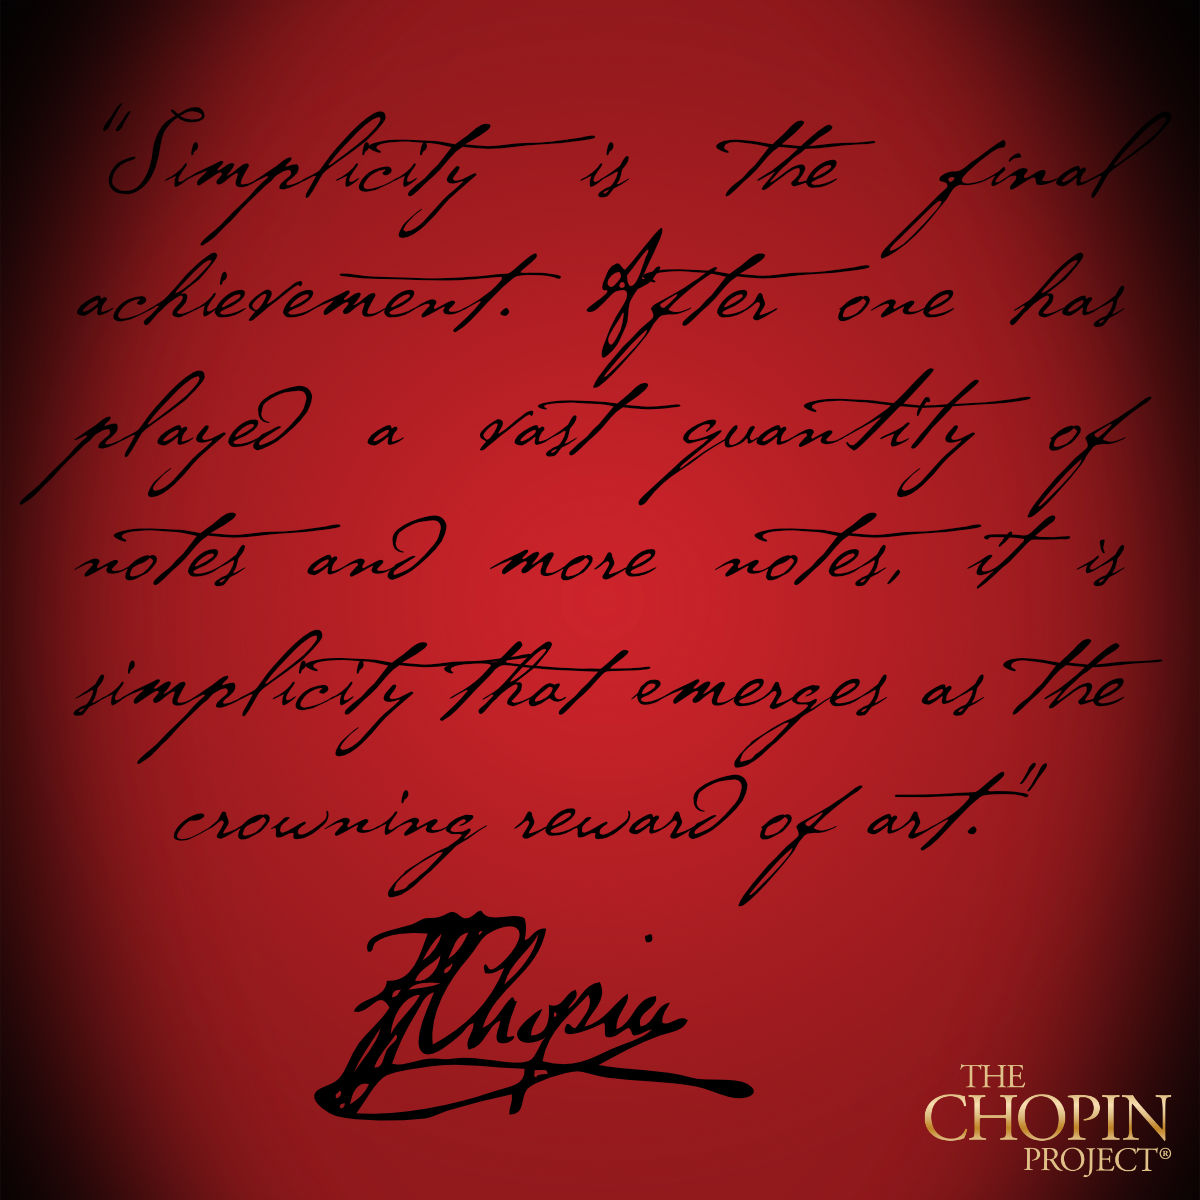 "Simplicity is the final
achievement. After one has
played a vast quantity of
notes and more notes, it is
simplicity that emerges as the
crowning reward of art."
FChopin
THE
CHOPIN
PROJECT®